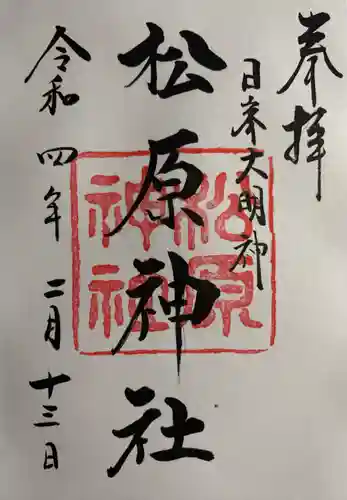 奉拝
日峯大明神
松原神社
松原
神社
令和四年二月十三日